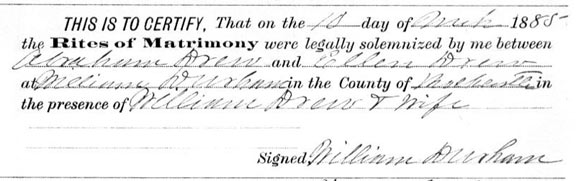 THIS IS TO CERTIFY, That on the 18 day of March 1885
the Rites of Matrimony were legally solemnized by me between
Abraham Drew and Ellen Drew
at William Durham in the County of in
the presence of William Drew & Wife
Signed, William Durham